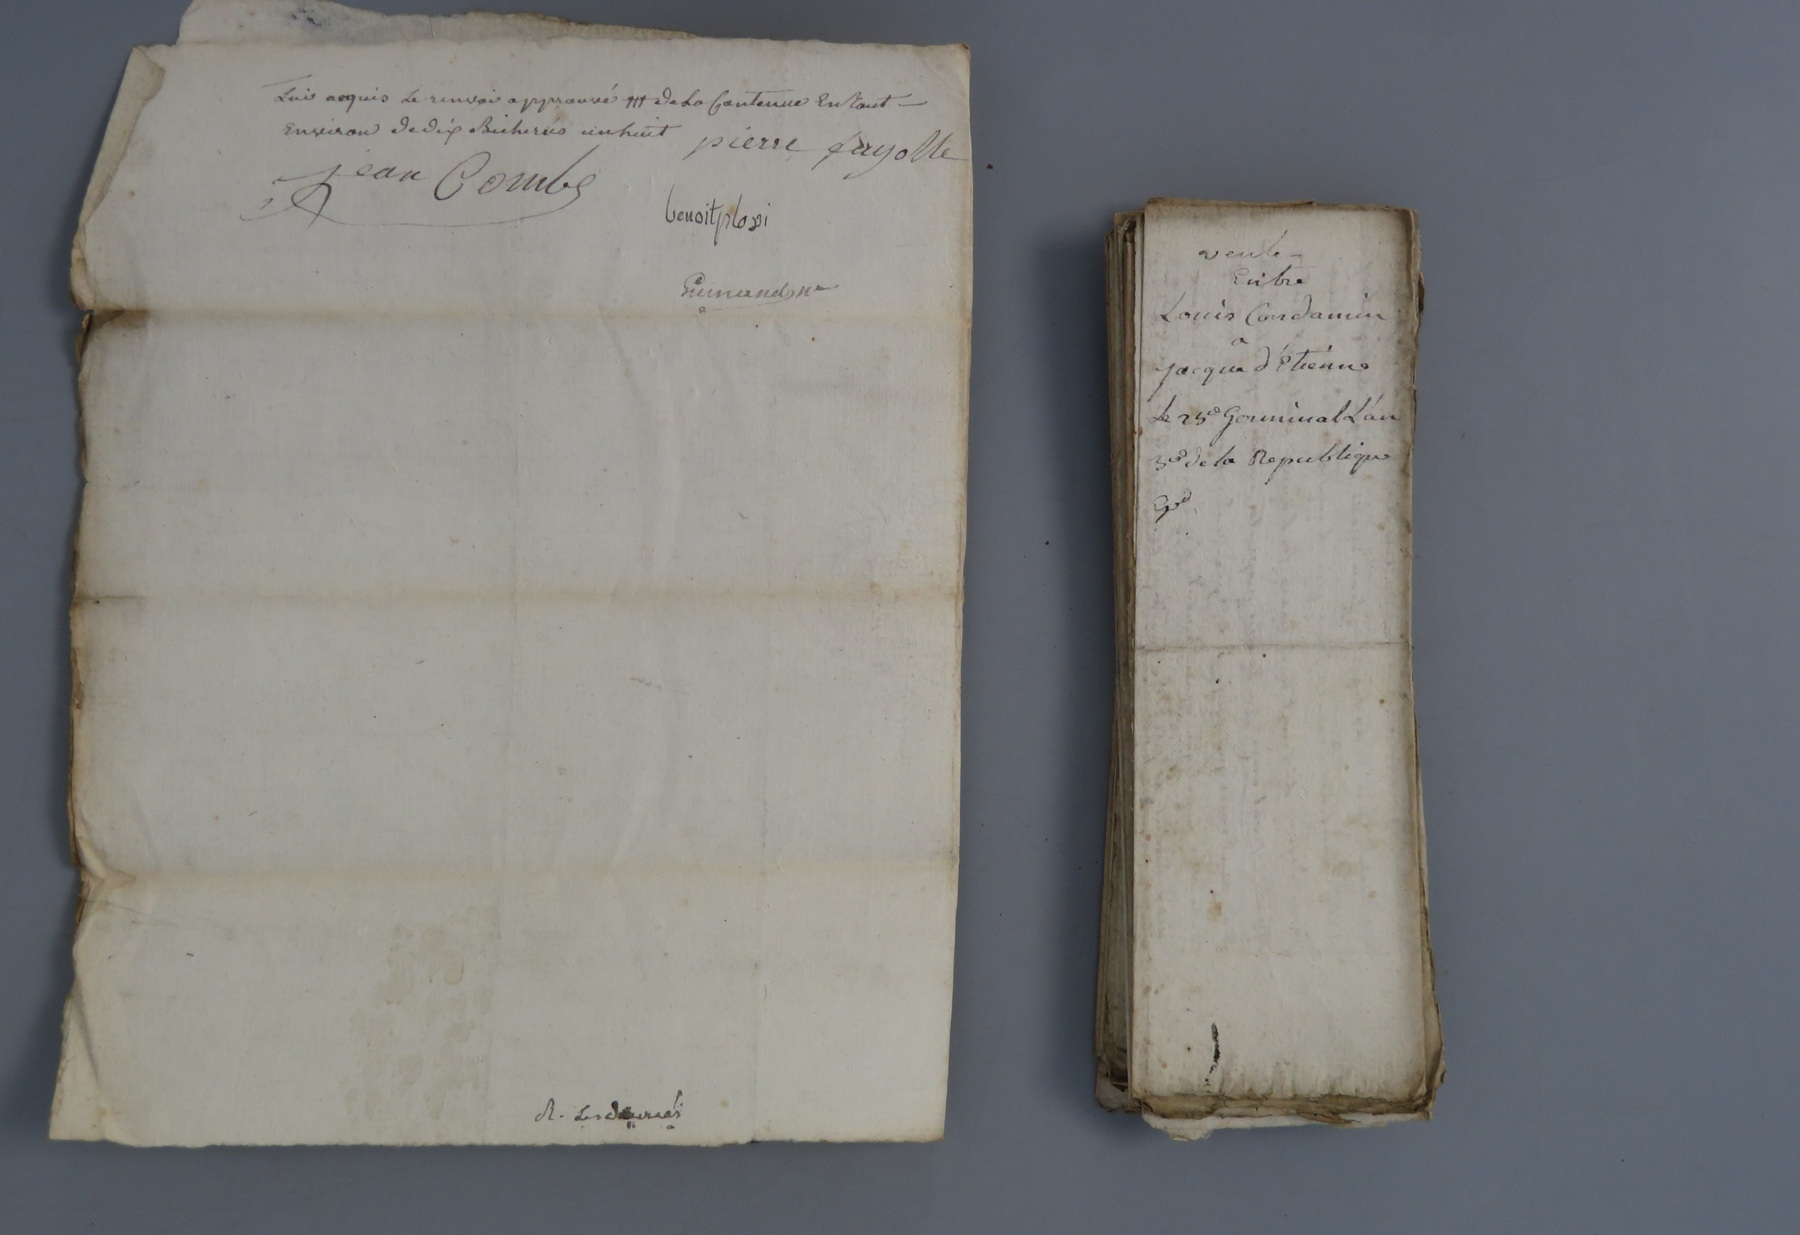 Lui acquis le renvoi approuvé de la Contenue En tout
Environ de dix Bicherés
pierre fayolle
jean Combe
benoit
vente
Entre
Louis Condamin
a
jacque d'Etienne
Le 25e Germinal L'an
3e de la Republique
R.